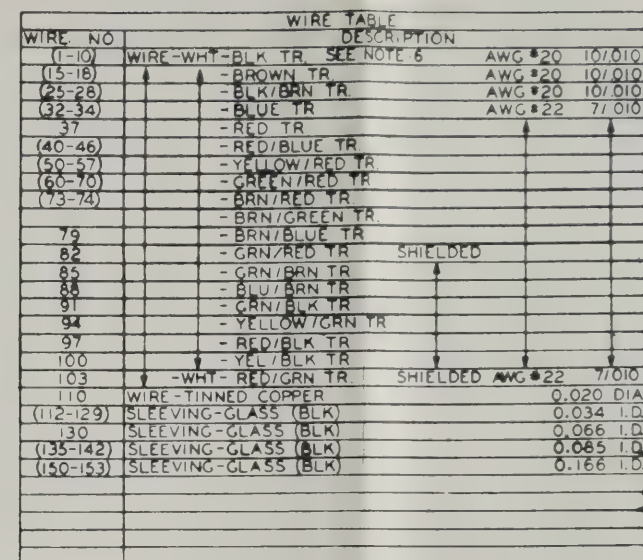 WIRE TABLE
WIRE NO DESCRIPTION
(1-10) WIRE-WHT-BLK TR. SEE NOTE 6 AWG #20 10/.010
(15-18) -BROWN TR. AWG #20 10/.010
(25-28) -BLK/BRN TR. AWG #20 10/.010
(32-34) -BLUE TR AWG #22 7/.010
37 -RED TR
(40-46) -RED/BLUE TR.
(50-57) -YELLOW/RED TR.
(60-70) -GREEN/RED TR
(73-74) -BRN/RED TR.
-BRN/GREEN TR.
79 -BRN/BLUE TR
82 -GRN/RED TR SHIELDED
85 -GRN/BRN TR
88 -BLU/BRN TR
91 -GRN/BLK TR
94 -YELLOW/GRN TR
97 -RED/BLK TR
100 -YEL/BLK TR
103 -WHT-RED/GRN TR. SHIELDED AWG #22 7/.010
110 WIRE-TINNED COPPER 0.020 DIA
(112-129) SLEEVING-GLASS (BLK) 0.034 I.D.
130 SLEEVING-GLASS (BLK) 0.066 I.D.
(135-142) SLEEVING-GLASS (BLK) 0.085 I.D.
(150-153) SLEEVING-GLASS (BLK) 0.166 I.D.